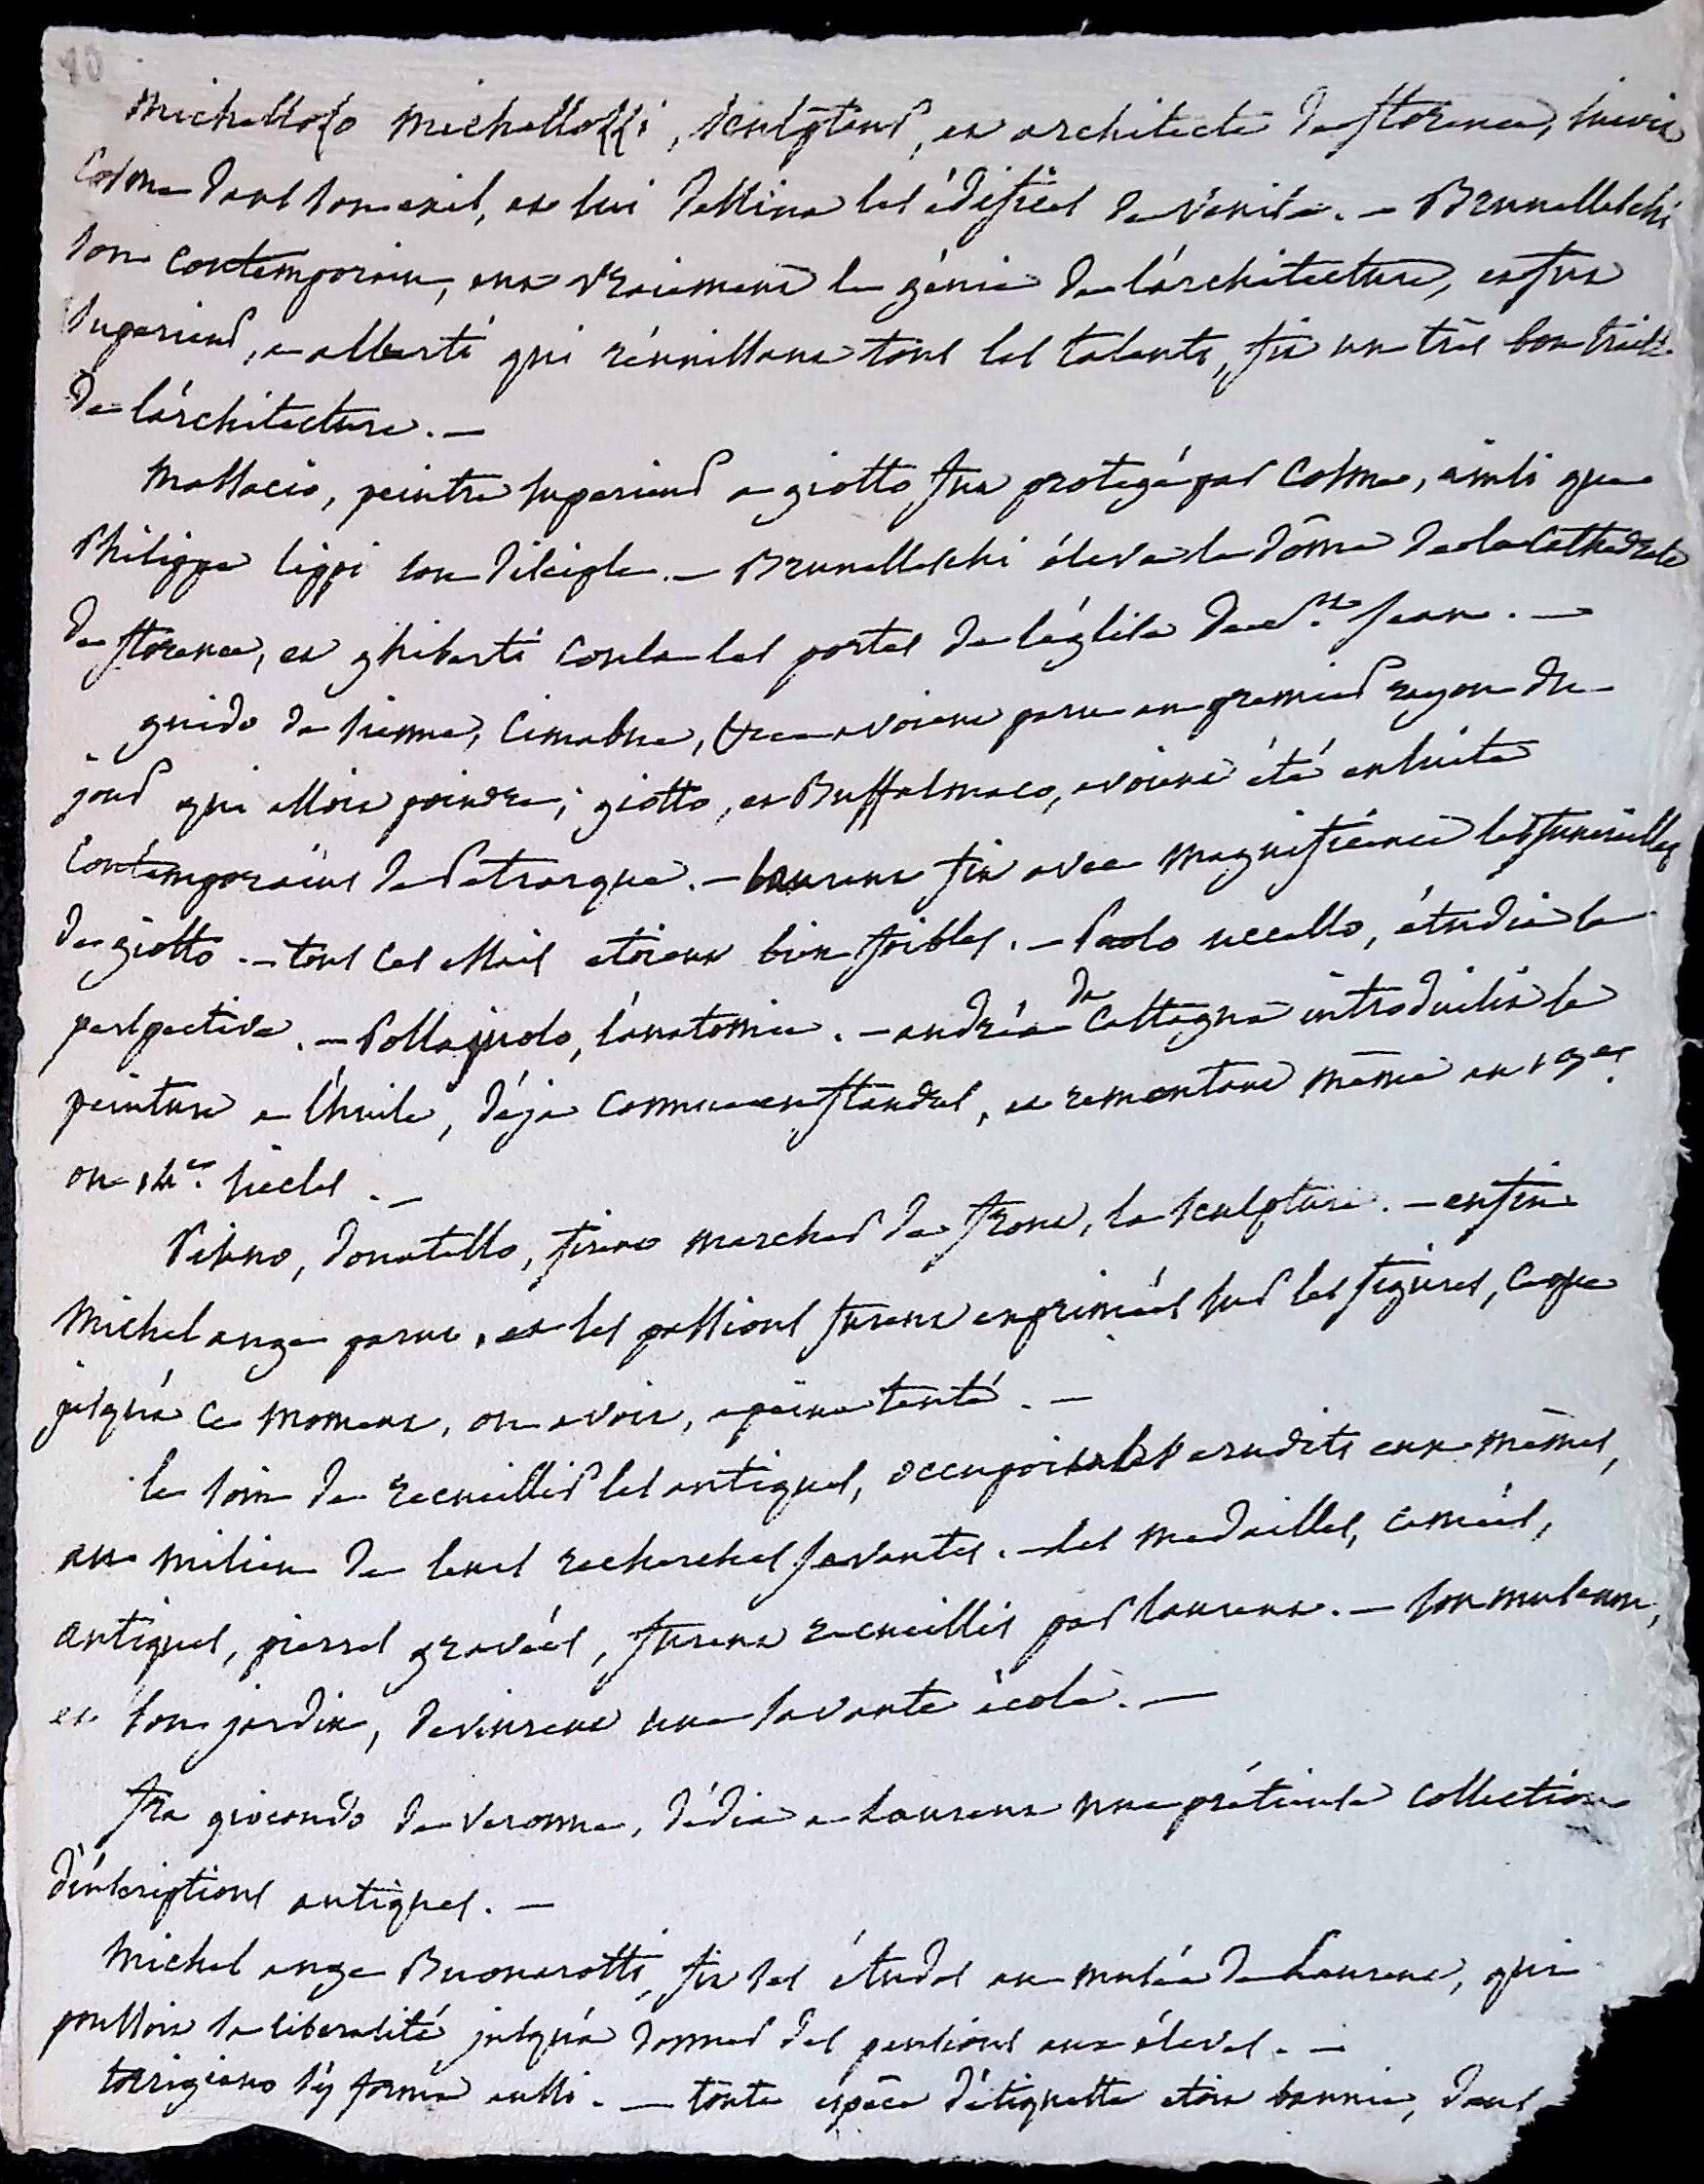 10
Michellozo Michellozzi, sculpteur, et architecte de florence, suivit
Cosme dans son exil, et lui dessina les édifices de venise. — Brunelleschi
son contemporain, eut vraiment le génie de l'architecture, et fut
superieur, a alberti qui réunissant tous les talents, fit un très bon traité
de l'architecture. —
Massacio, peintre superieur a giotto fut protégé par Cosme, ainsi que
Philippe lippi son disciple. — Brunelleschi éleva le dôme de la Cathedrale
de florence, et ghiberti coula les portes de l'église de St. Jean. —
guido de sienne, Cimabue, &c. avoient paru au premier rayon du
jour qui alloit poindre; giotto, et Buffalmaco, avoient été ensuite
Contemporains de Petrarque. — laurent fit avec magnificence les funerailles
de giotto. — tous ces essais etoient bien foibles. — Paolo uccello, étudia la
perspective. — Pollajuolo, l'anatomie. — andréa da Castagna introduisit la
peinture a l'huile, déja connue en flandres, et remontant même au 13es
ou 14es. siecles. —
Pisano, donatello, firent marcher de front, la sculpture. — enfin
Michel ange parut, et les passions furent exprimées sur les figures, ce que
jusqu'a ce moment, on avoit, a peine tenté. —
le soin de recueillir les antiques, occupoit les erudits eux mêmes,
au milieu de leurs recherches savantes. — les medailles, camées,
antiques, pierres gravées, furent recueillis par laurent. — son museum,
et son jardin, devinrent une savante école. —
fra giocondo de veronne, dédia a Laurent une prétieuse collection
d'inscriptions antiques. —
Michel ange Buonarotti, fit ses études au musée de Laurent, qui
poussoit sa liberalité jusqu'a donner des pensions aux éleves. —
torrigiano s'y forma aussi. — toute espèce d'étiquette etoit bannie, dans